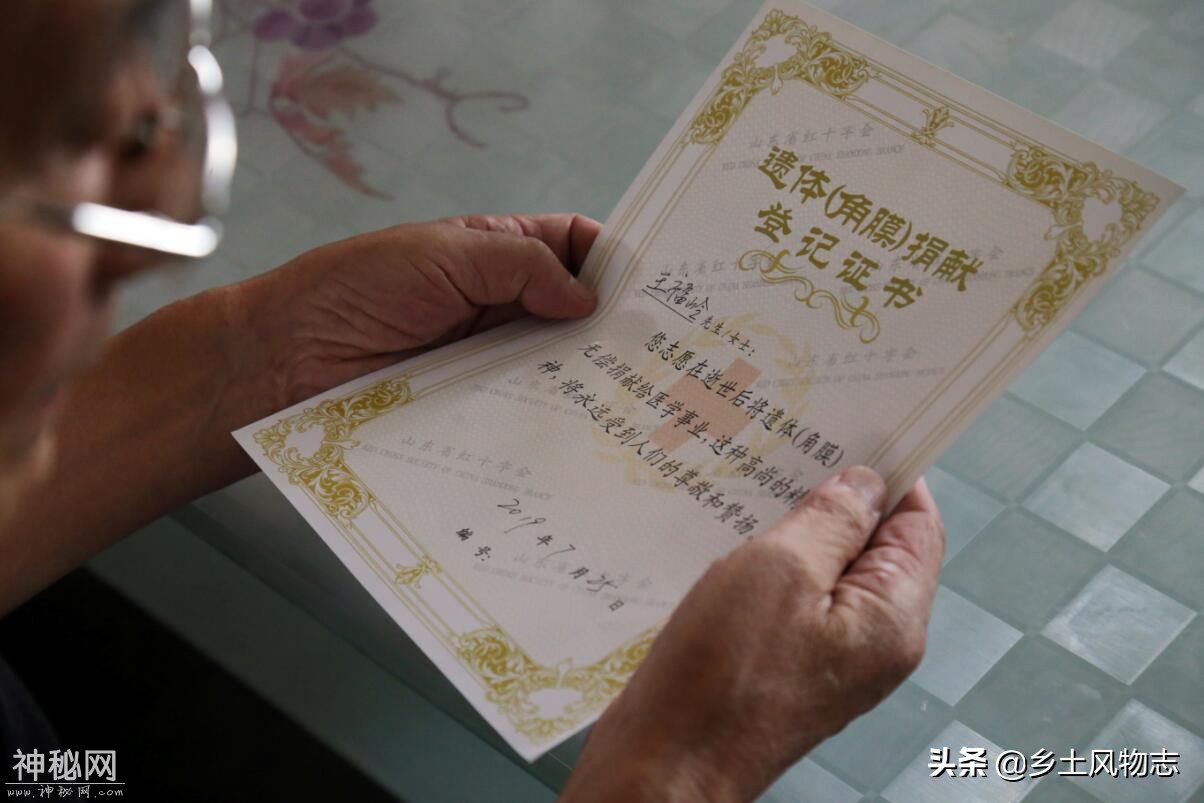 山东省红十字会
RED CROSS SOCIETY OF CHINA SHANDONG BRANCH
遗体(角膜)捐献
登记证书
先生/女士:
您志愿在逝世后将遗体(角膜)
无偿捐献给医学事业,这种高尚的精
神,将永远受到人们的尊敬和赞扬。
山东省红十字会
RED CROSS SOCIETY OF CHINA SHANDONG BRANCH
2019年7月25日
编号:
神秘网
www.神秘网.com
头条 @乡土风物志